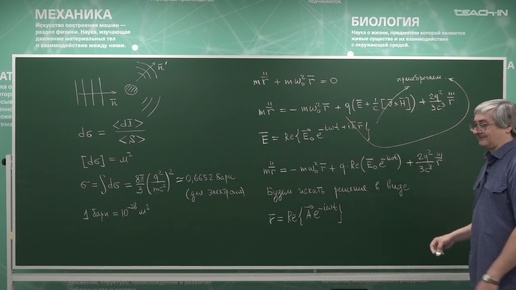 МЕХАНИКА
Искусство построения машин —
раздел физики. Наука, изучающая
движение материальных тел
и взаимодействие между ними.
TEACH-IN
БИОЛОГИЯ
Наука о жизни, предметом которой являются
живые существа и их взаимодействие
с окружающей средой.
n̄'
n̄
dσ = <dJ> / <S>
[dσ] = м²
σ = ∫dσ = 8π/3 (q²/mc²)² ≈ 0,6652 барн
(для электрона)
1 барн = 10⁻²⁸ м²
m r̈ + mω₀² r̄ = 0
пренебрегаем
m r̈ = - mω₀² r̄ + q(Ē + 1/c [v̄ × H̄]) + 2q²/3c³ r⃛
Ē = Re{Ē₀ e^{-iωt + ik̄r̄}}
m r̈ = - mω₀² r̄ + q·Re(Ē₀ e^{-iωt}) + 2q²/3c³ r⃛
Будем искать решение в виде
r̄ = Re{A⃗ e^{-iωt}}